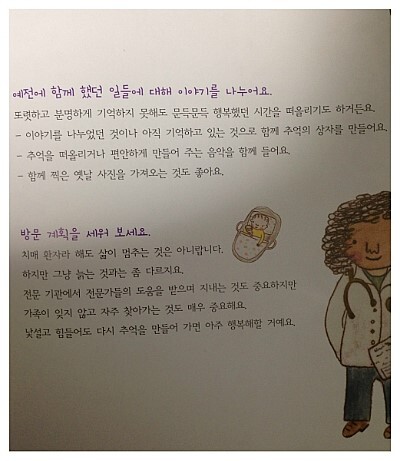 예전에 함께 했던 일들에 대해 이야기를 나누어요.
또렷하고 분명하게 기억하지 못해도 문득문득 행복했던 시간을 떠올리기도 하거든요.
- 이야기를 나누었던 것이나 아직 기억하고 있는 것으로 함께 추억의 상자를 만들어요.
- 추억을 떠올리거나 편안하게 만들어 주는 음악을 함께 들어요.
- 함께 찍은 옛날 사진을 가져오는 것도 좋아요.
방문 계획을 세워 보세요.
치매 환자라 해도 삶이 멈추는 것은 아니랍니다.
하지만 그냥 늙는 것과는 좀 다르지요.
전문 기관에서 전문가들의 도움을 받으며 지내는 것도 중요하지만
가족이 잊지 않고 자주 찾아가는 것도 매우 중요해요.
낯설고 힘들어도 다시 추억을 만들어 가면 아주 행복해할 거예요.